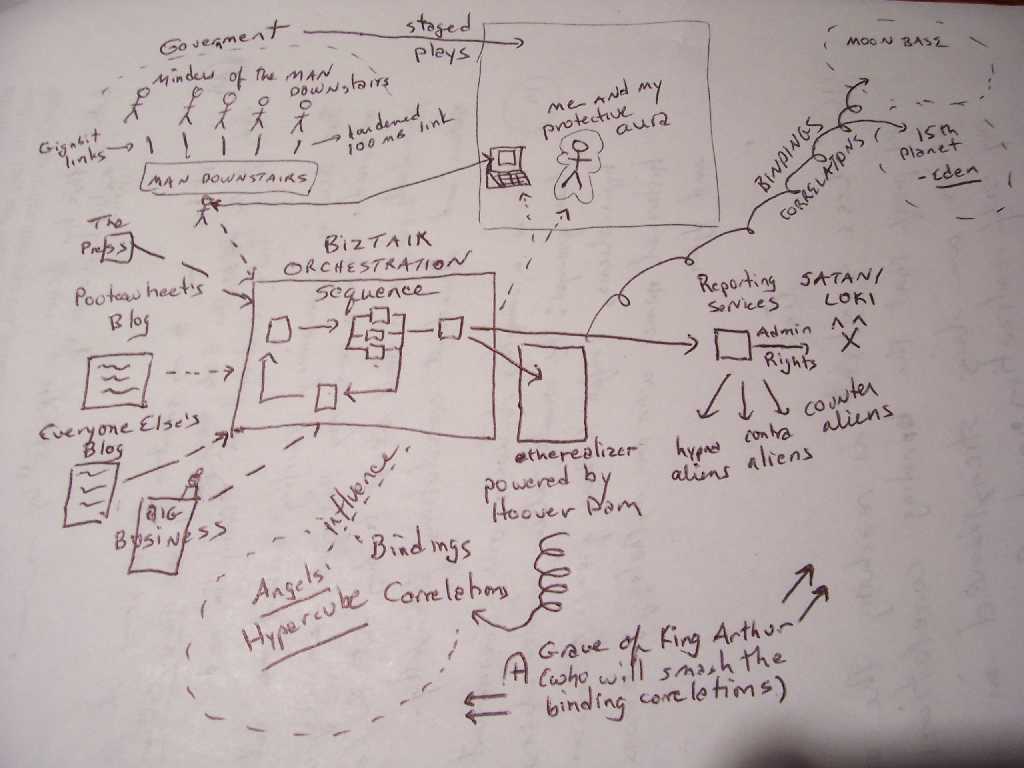 Goverment
staged
plays
Mindew of the MAN
DOWNstairs
Gigabit
links
hardened
100 mb link
MAN DOWNSTAIRS
me and my
protective
aura
MOON BASE
15th
planet
-Eden
BINDINGS
CORRELATIONS
The
Press
BizTalk
ORCHESTRATION
sequence
Pootewheet's
Blog
Everyone Else's
Blog
BIG
BUSINESS
Reporting
Services
SATAN/
LOKI
Admin
Rights
hypno
aliens
contra
aliens
counter
aliens
etherealizer
powered by
Hoover Dam
influence
Angels'
Hypercube
Bindings
Correlations
Grave of King Arthur
(who will smash the
binding correlations)